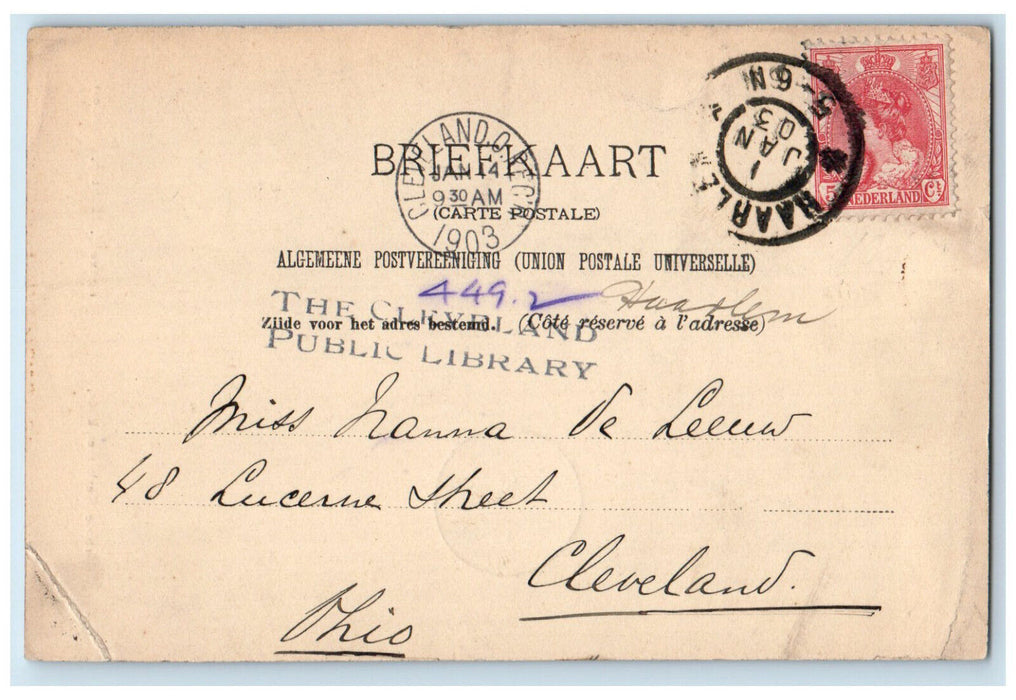 BRIEFKAART
CLEVELAND, O. REC'D.
JAN 14
9 30 AM
1903
(CARTE POSTALE)
HAARLEM
5-6N
1
JAN
03
5 Ct
NEDERLAND
ALGEMEENE POSTVEREENIGING (UNION POSTALE UNIVERSELLE)
449.2 Haarlem
Zijde voor het adres bestemd. (Côté réservé à l'adresse)
THE CLEVELAND
PUBLIC LIBRARY
Miss Nanna De Leeuw
48 Lucerne Street
Cleveland.
Ohio